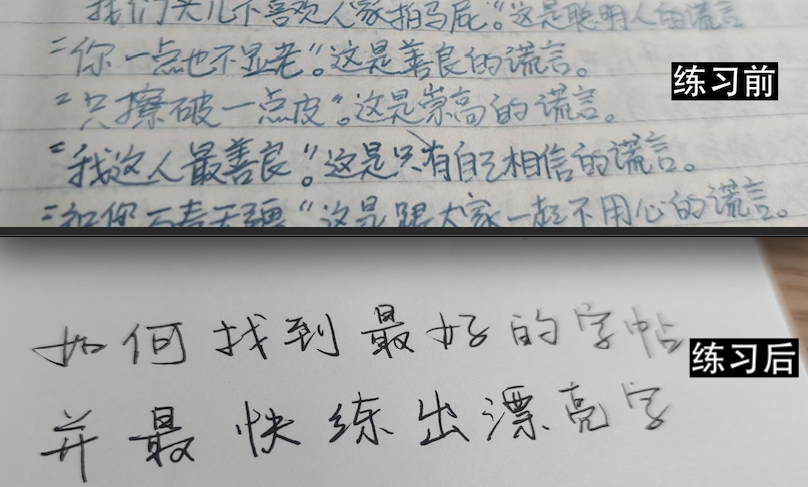 我们头儿不喜欢人家拍马屁。"这是聪明人的谎言
"你一点也不显老"。这是善良的谎言。
练习前
"只擦破一点皮"。这是崇高的谎言。
"我这人最善良"。这是只有自己相信的谎言。
"祝你万寿无疆"这是跟大家一起不用心的谎言。
如何找到最好的字帖
练习后
并最快练出漂亮字